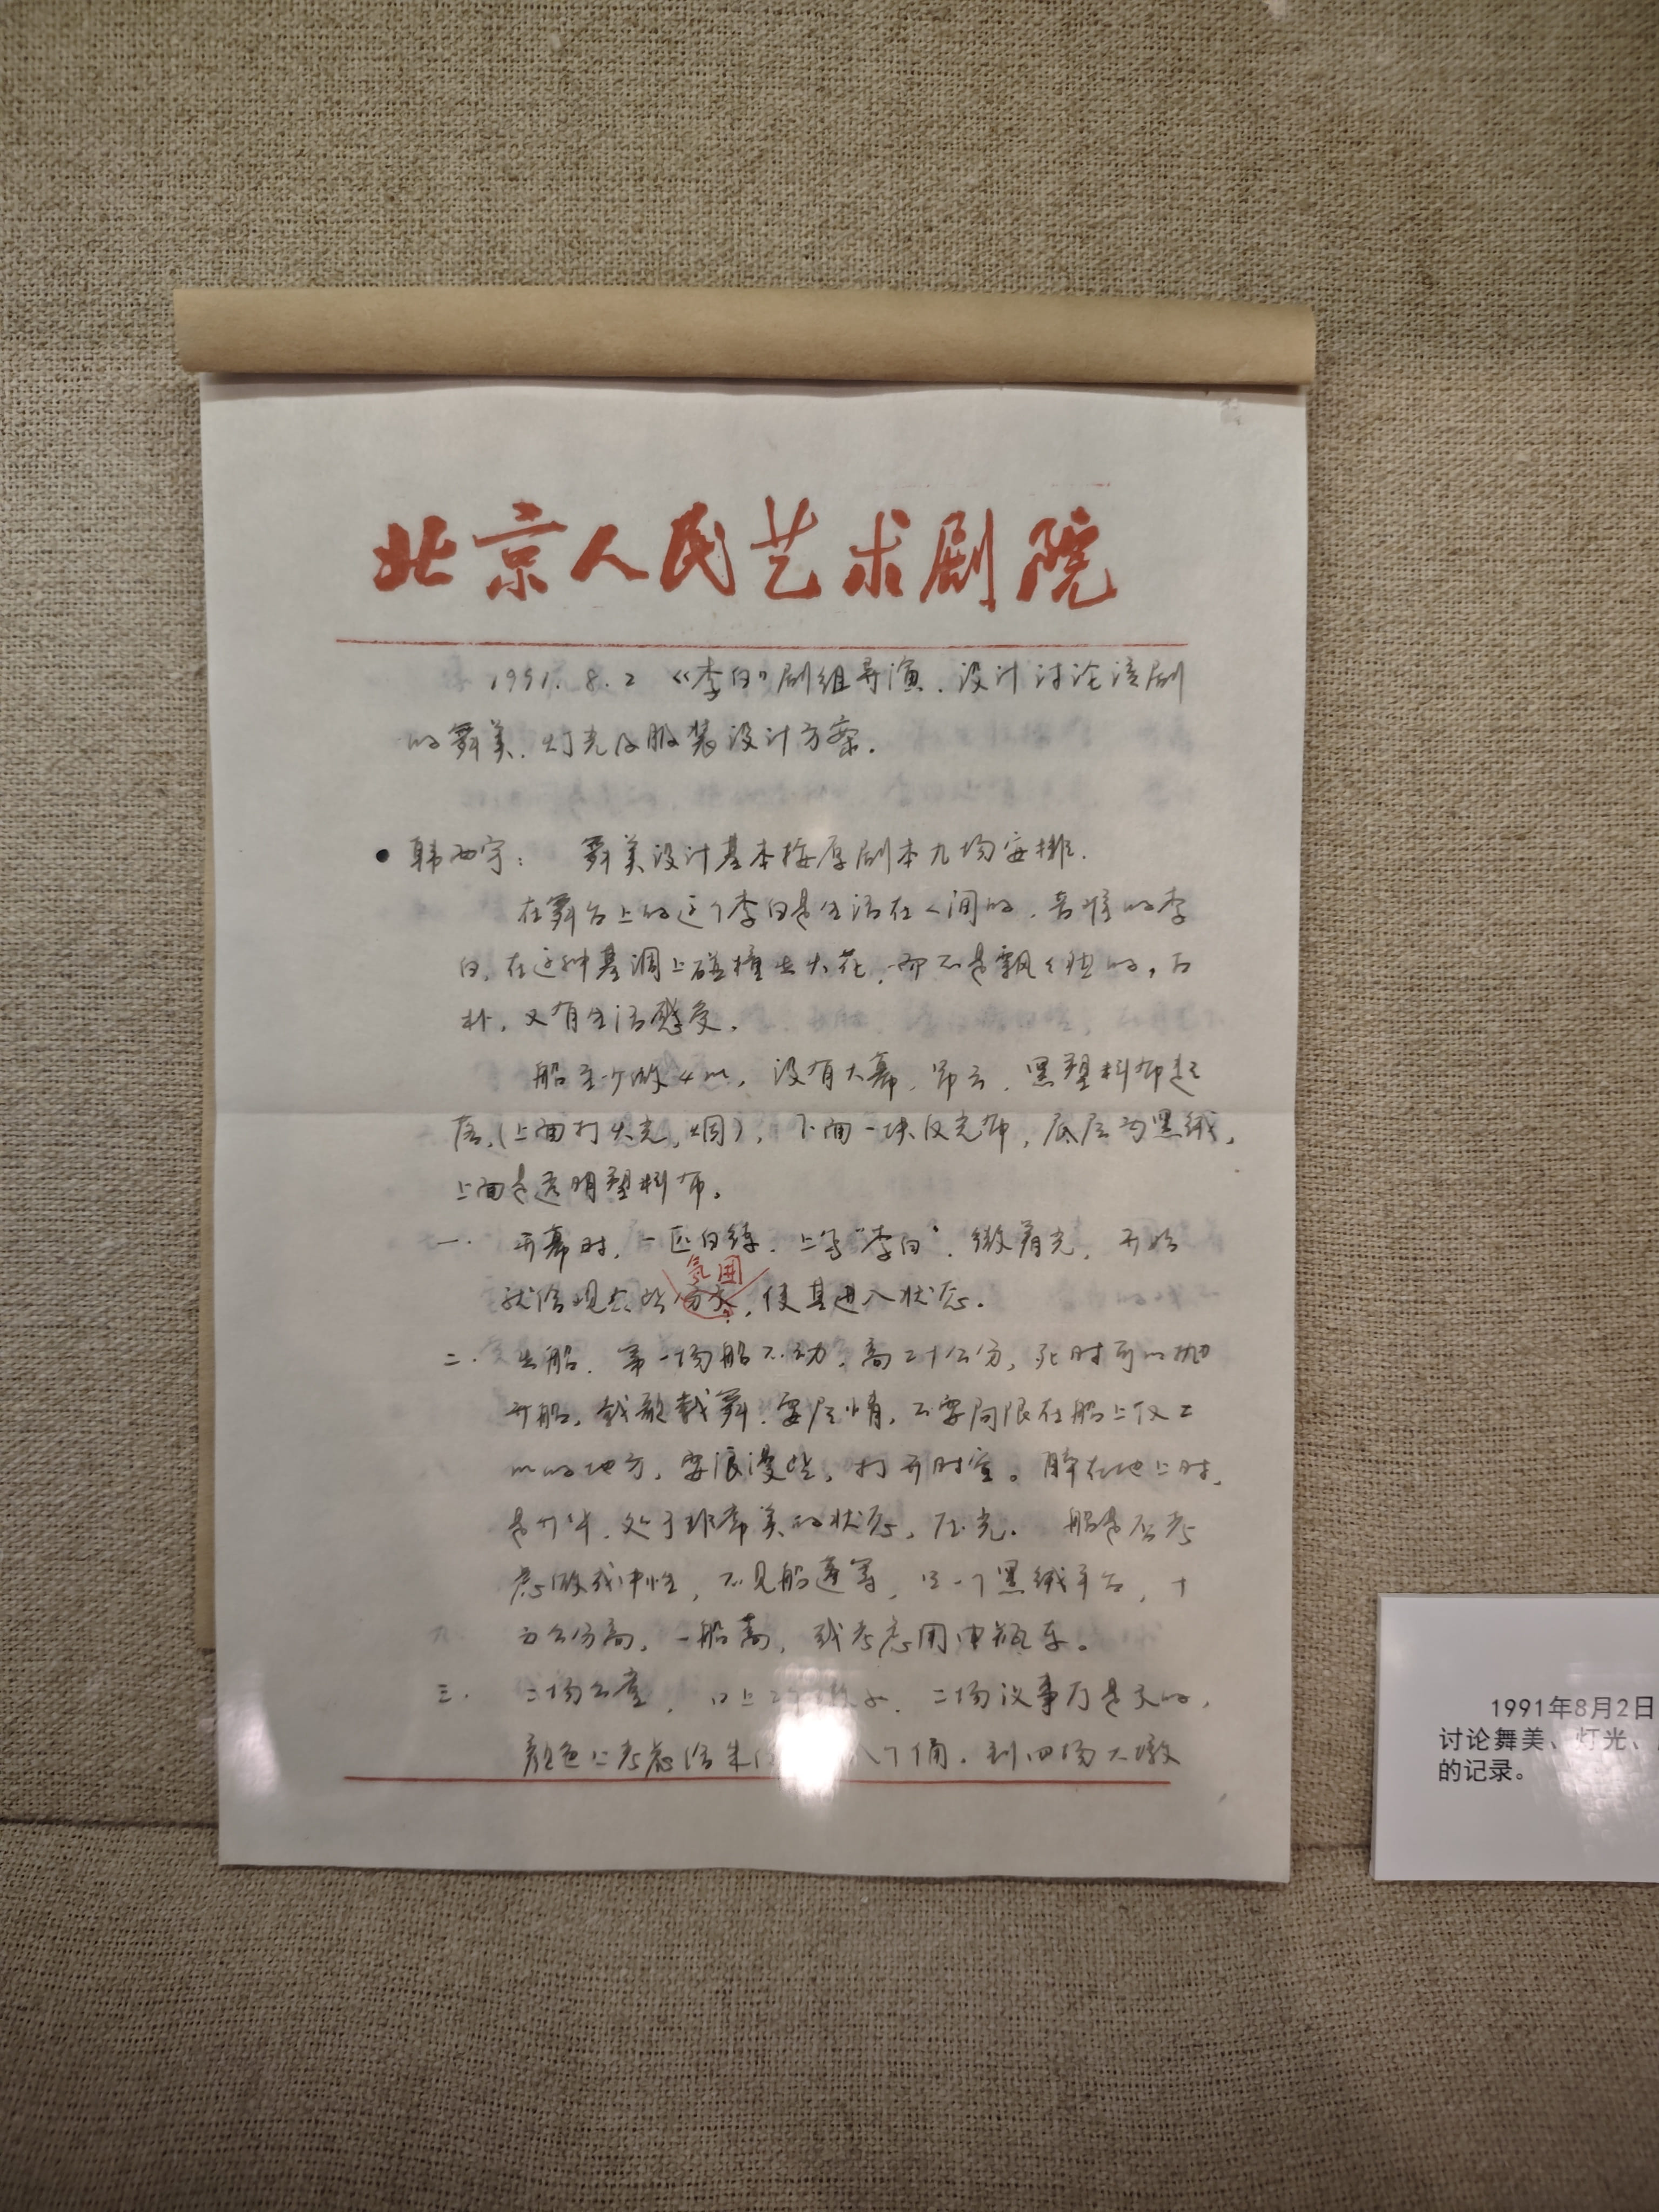 北京人民艺术剧院
1991.8.2 《李白》剧组导演、设计讨论该剧
的舞美、灯光及服装设计方案.
● 韩西宇: 舞美设计基本按原剧本九场安排.
在舞台上的这个李白是生活在人间的、苦难的李
白,在这种基调上碰撞出火花,而不是飘飘然的,古
朴,又有生活感受.
船至少做4m,没有大幕,吊云,黑塑料布起
(上面打天光,烟),下面一块反光布,底层为黑绒,
上面是透明塑料布。
一. 开幕时,一匹白绫,上写“李白”,微着光,开始
就给观众些 氛围,使其进入状态.
二. 出船,第一场船不动,高二十公分,死时可以抛
开船,载歌载舞,要尽情,不要局限在船上仅二
m的地方,要浪漫些,打开时空。醉在地上时,
处于非常美的状态,压光. 船是否考
虑做成中性,不见船蓬等,只一个黑绒平台,十
五公分高,一船高,或考虑用电瓶车。
三. 二场议事厅是天的,
颜色上考虑 到四场大墩
1991年8月2日
讨论舞美、灯光、
的记录。